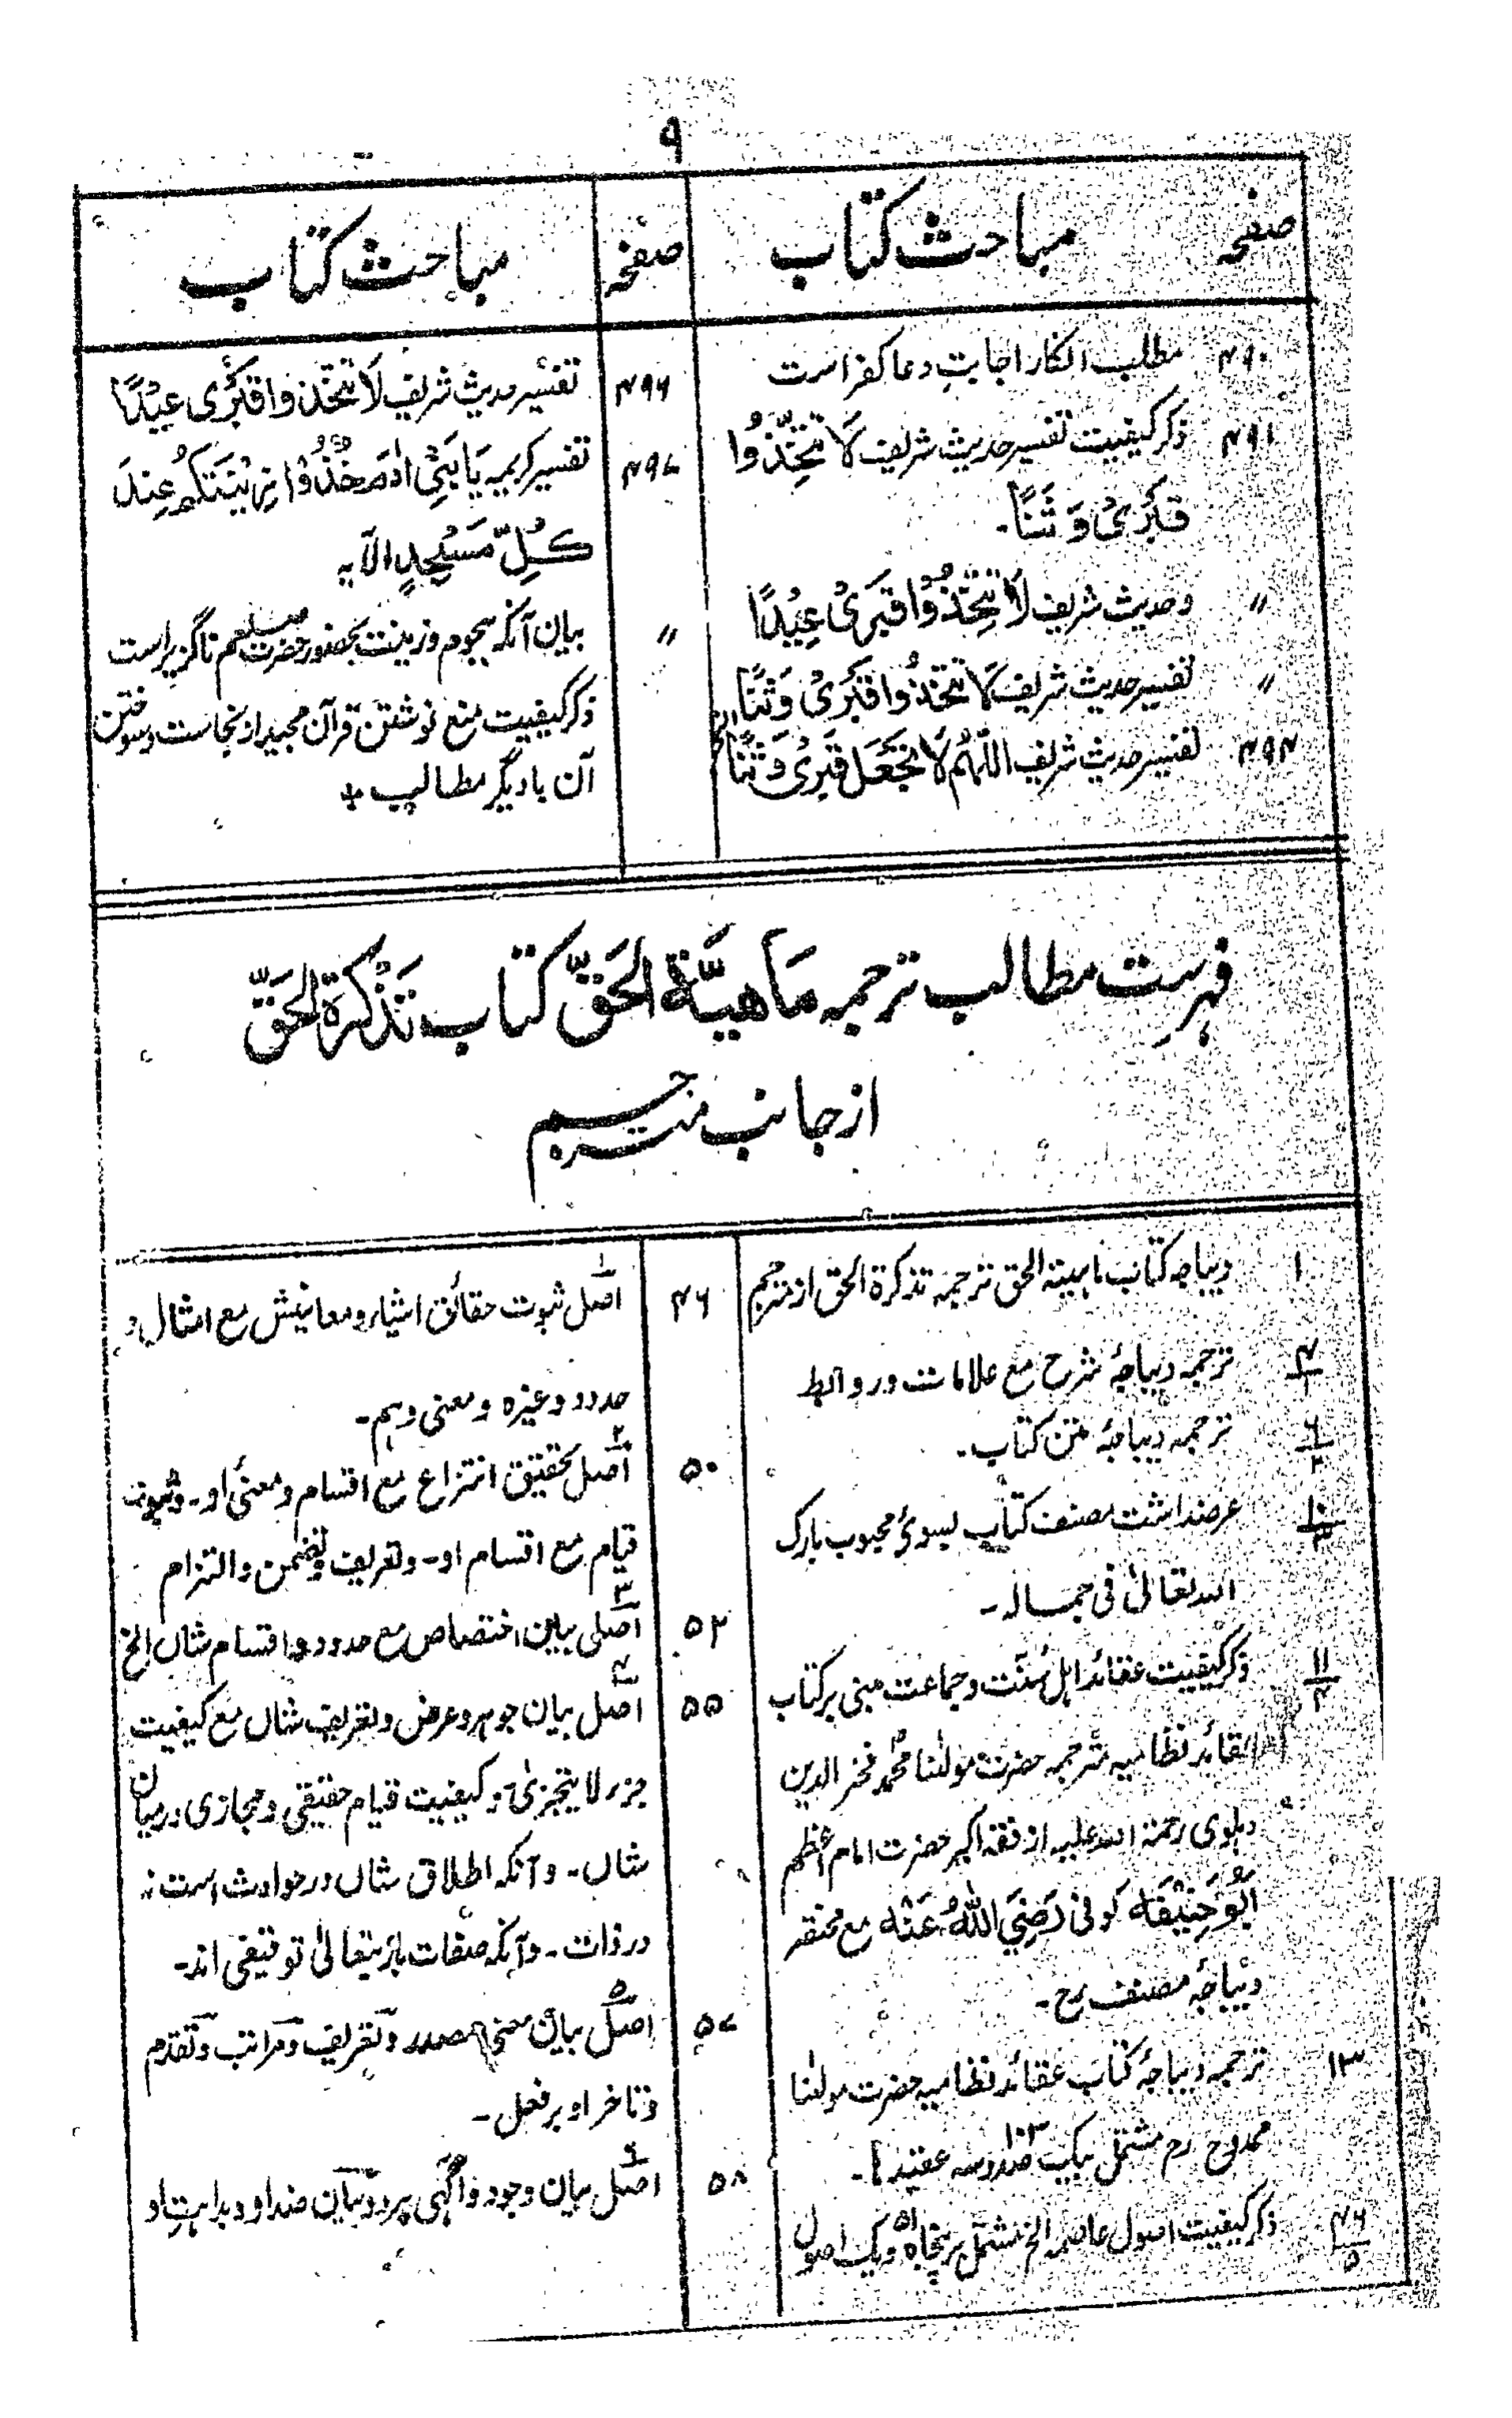 ۹
صفحہ مباحث کتاب
۴۹۰ مطلب انکار اجابتِ دعا کفر است
۴۹۱ ذکر کیفیت تفسیر حدیث شریف لَا تَتَّخِذُوْا
قَبْرِیْ وَثَنًا۔
〃 وحدیث شریف لَا تَتَّخِذُوْا قَبْرِیْ عِیْدًا
〃 تفسیر حدیث شریف لَا تَتَّخِذُوا قَبْرِیْ وَثَنًا الخ
۴۹۴ تفسیر حدیث شریف اللّٰهُمَّ لَا تَجْعَلْ قَبْرِیْ وَثَنًا
صفحہ مباحث کتاب
۴۹۶ تفسیر حدیث شریف لَا تَتَّخِذُوا قَبْرِی عِیْدًا
۴۹۷ تفسیر کریمہ یَا بَنِیْ اٰدَمَ خُذُوْا زِیْنَتَکُمْ عِنْدَ
کُلِّ مَسْجِدٍ الآیہ
〃 بیان آنکہ ہجوم وزینت بحضور حضرت صلعم ناگزیر است
ذکر کیفیت منع نوشتن قرآن مجید از نجاست وسوختن
آن با دیگر مطالب
فہرست مطالب ترجمہ مَاهِیَّةُ الْحَقِّ کتاب تَذْکِرَةُ الْحَقِّ
از جانب مترجم
۱ دیباچہ کتاب ماہیتہ الحق ترجمہ تذکرة الحق از مترجم
۴/۱ ترجمہ دیباچۂ شرح مع علامات وروابط
۶/۲ ترجمہ دیباچۂ متن کتاب۔
۱۰/۳ عرضداشت مصنف کتاب بسوئ محبوب بارک
اللہ تعالیٰ فی جمالہ۔
۱۱/۴ ذکر کیفیت عقائد اہل سُنّت وجماعت مبنی بر کتاب
عقائد نظامیہ مترجمہ حضرت مولٰنا محمد فخر الدین
دہلوی رحمتہ اللہ علیہ از فقہ اکبر حضرت امام اعظم
اَبُوْحَنِیْفَه کوفی رَضِیَ اللّٰهُ عَنْه مع مختصر
دیباچۂ مصنف رح۔
۱۳ ترجمہ دیباچۂ کتاب عقائد نظامیہ حضرت مولٰنا
ممدوح رح مشتمل بیک صدوسہ ۱۰۳ عقیدہا۔
۴۶/۵ ذکر کیفیت اصول عاصمہ الخ مشتمل بر پنجاہ ویک ۵۱ اصول
۴۶ اصل ۱ ثبوت حقائق اشیاء ومعانیش مع امثال و
حدود وغیرہ ومعنی وہم۔
۵۰ اصل ۲ تحقیق انتزاع مع اقسام ومعنیٔ او۔ وثبوت
قیام مع اقسام او۔ وتعریف وتضمن والتزام
۵۲ اصل ۳ بیان اختصاص مع حدود واقسام شان الخ
۵۵ اصل ۴ بیان جوہر وعرض وتعریف شان مع کیفیت
جزء لا یتجزیٰ وکیفیت قیام حقیقی ومجازی درمیان
شان۔ وآنکہ اطلاق شان در حوادث است نہ
در ذات۔ وآنکہ صفات باریتعالیٰ توقیفی اند۔
۵۷ اصل ۵ بیان معنی مصدر وتعریف ومراتب وتقدم
وتاخر او بر فعل۔
۵۸ اصل ۶ بیان وجود وآگہی بر دو بیان ضد او وبداہتِ او